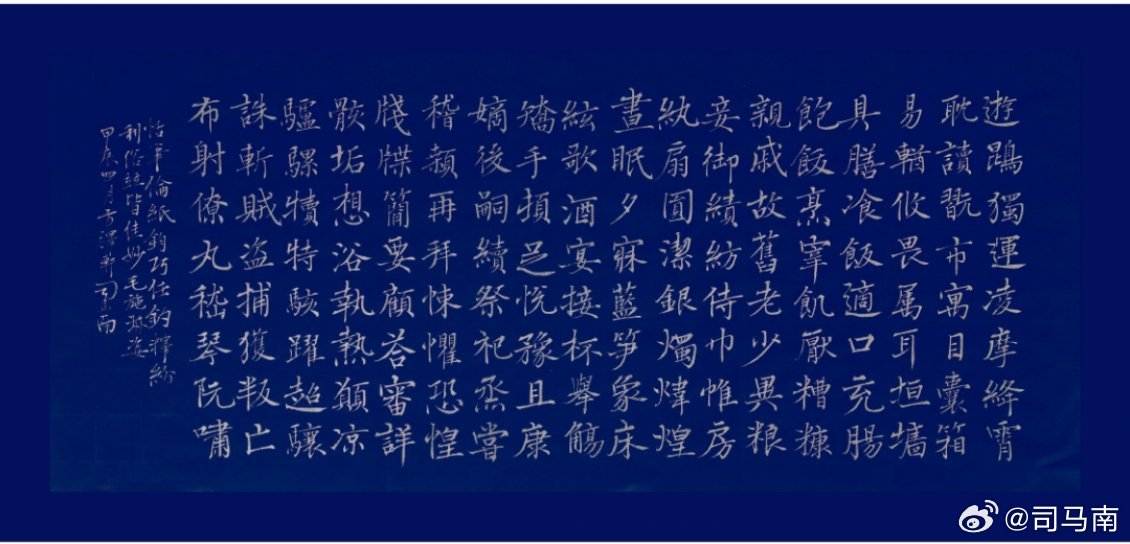 遊鵾獨運凌摩絳霄
耽讀翫市寓目囊箱
易輶攸畏属耳垣墻
具膳飡飯適口充腸
飽飫烹宰飢厭糟糠
親戚故舊老少異粮
妾御績紡侍巾帷房
紈扇圎潔銀燭煒煌
晝眠夕寐藍笋象床
絃歌酒宴接杯舉觴
矯手頓足悦豫且康
嫡後嗣續祭祀烝嘗
稽顙再拜悚懼恐惶
牋牒簡要顧荅審詳
骸垢想浴執熱願凉
驢騾犢特駭躍超驤
誅斬賊盗捕獲叛亡
布射僚丸嵇琴阮嘯
恬筆倫紙鈞巧任釣釋紛
利俗並皆佳妙毛施淑姿
甲辰四月方澤軒司馬南
@司马南